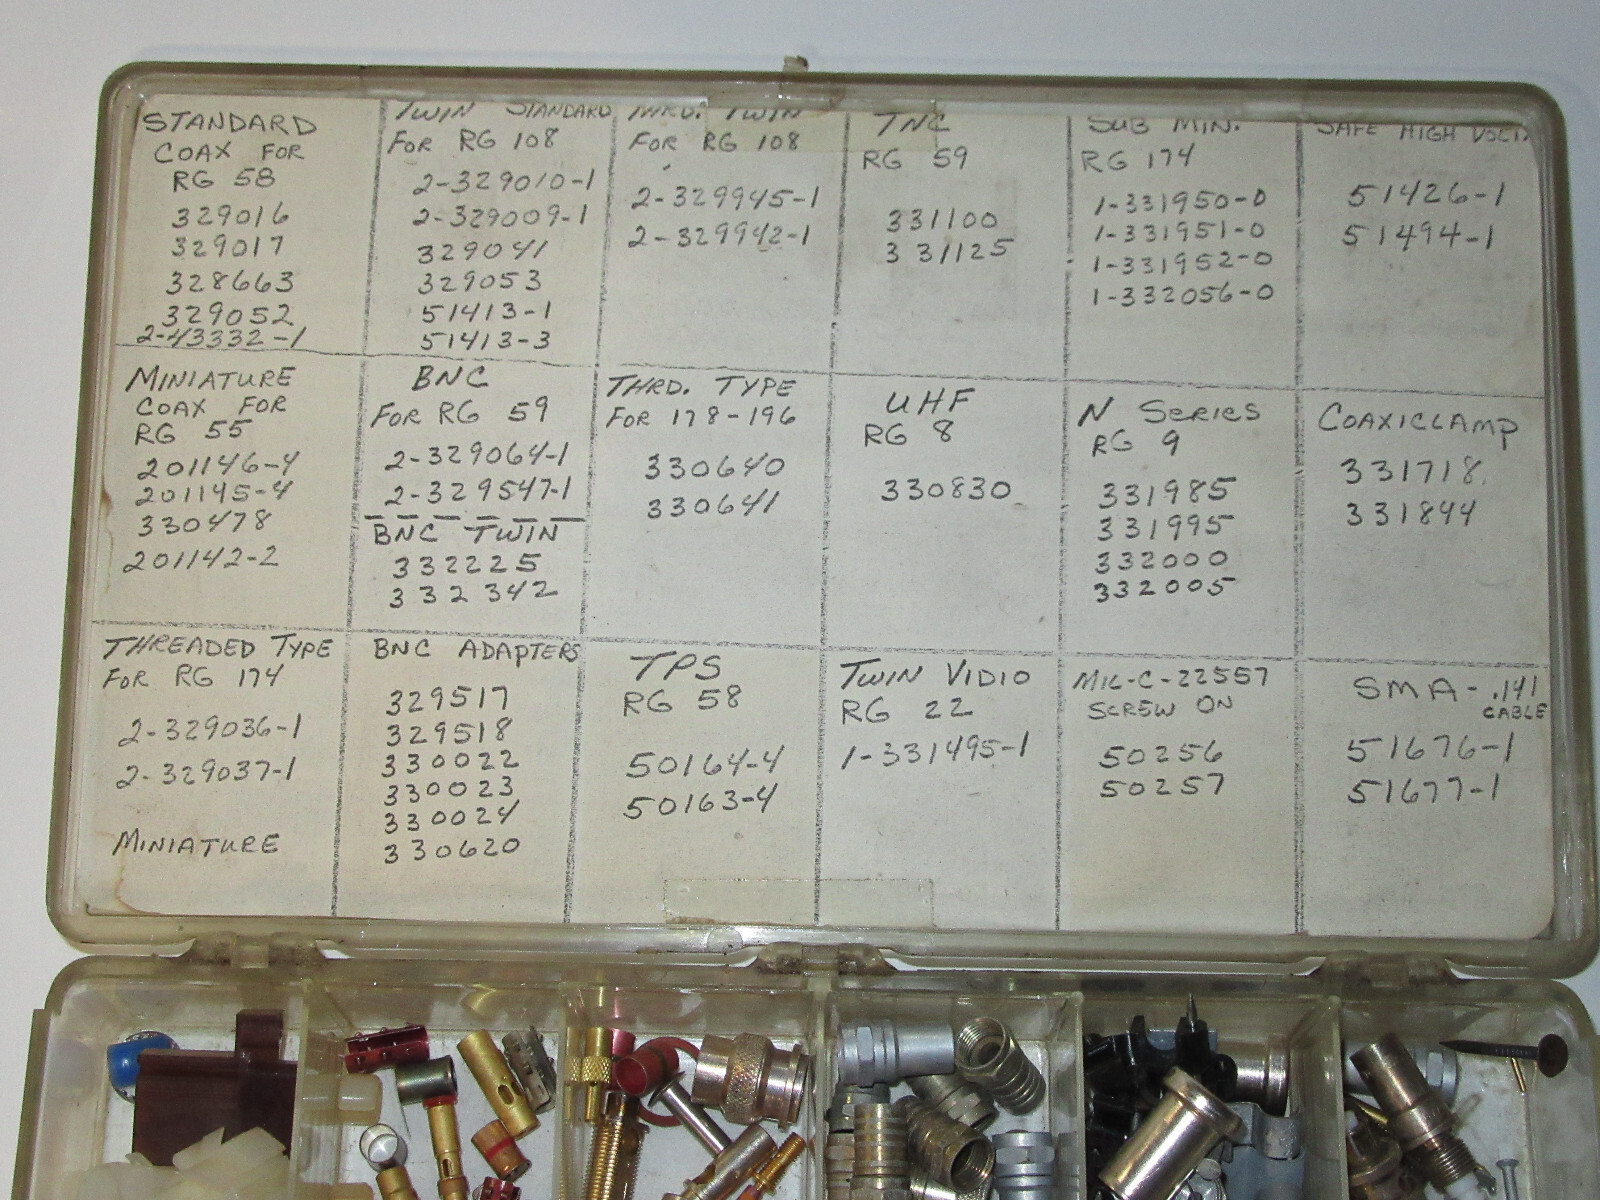 STANDARD
COAX FOR
RG 58
329016
329017
328663
329052
2-43332-1
TWIN STANDARD
FOR RG 108
2-329010-1
2-329009-1
329041
329053
51413-1
51413-3
THRD. TWIN
FOR RG 108
2-329945-1
2-329942-1
TNC
RG 59
331100
331125
SUB MIN.
RG 174
1-331950-0
1-331951-0
1-331952-0
1-332056-0
SAFE HIGH VOLT.
51426-1
51494-1
MINIATURE
COAX FOR
RG 55
201146-4
201145-4
330478
201142-2
BNC
FOR RG 59
2-329064-1
2-329547-1
BNC TWIN
332225
332342
THRD. TYPE
FOR 178-196
330640
330641
UHF
RG 8
330830
N SERIES
RG 9
331985
331995
332000
332005
COAXICLAMP
331718
331844
THREADED TYPE
FOR RG 174
2-329036-1
2-329037-1
MINIATURE
BNC ADAPTERS
329517
329518
330022
330023
330024
330620
TPS
RG 58
50164-4
50163-4
TWIN VIDIO
RG 22
1-331495-1
MIL-C-22557
SCREW ON
50256
50257
SMA-.141
CABLE
51676-1
51677-1